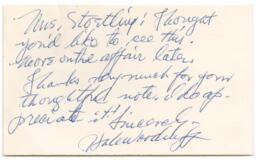 Mrs. Stoelting: I thought
you'd like to see this.
More on the affair later.
Thanks very much for your
thoughtful note. I do ap-
preciate it! Sincerely –
Hale Woodruff